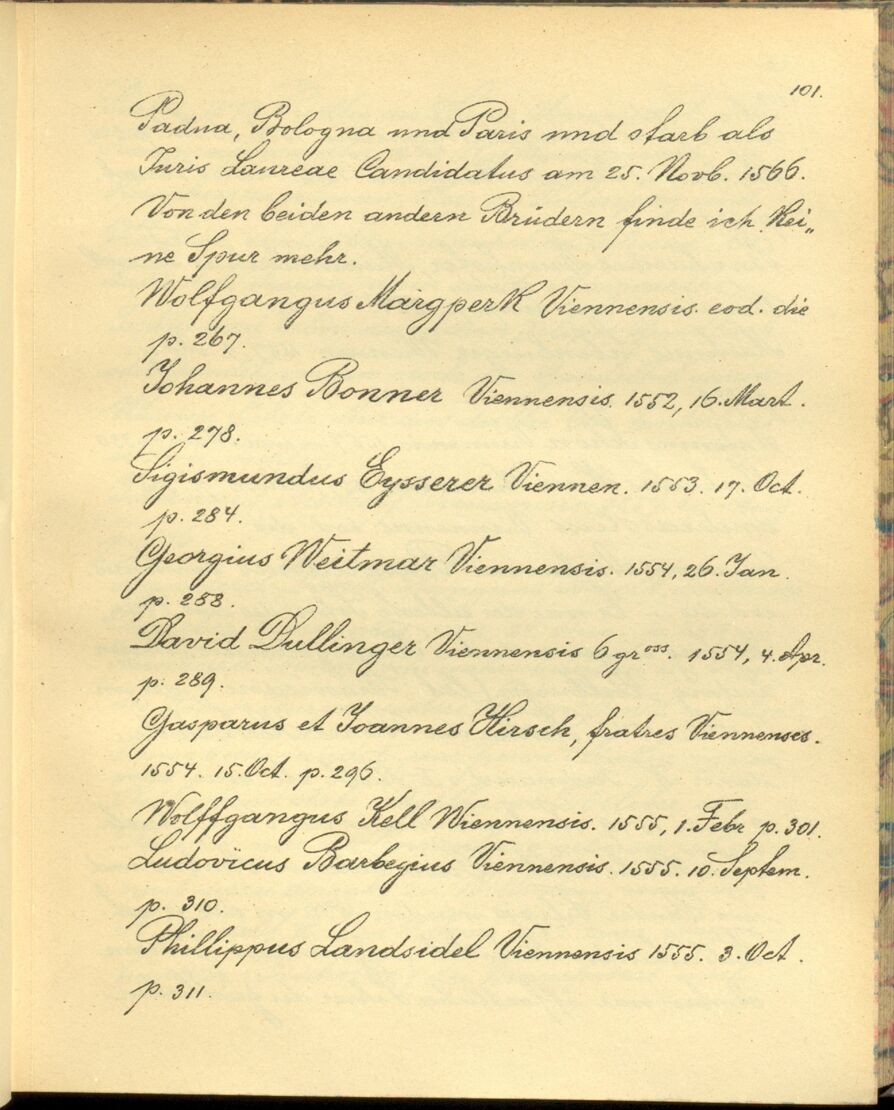 101.
Padua, Bologna und Paris und starb als
Juris Laureae Candidatus am 25. Novb. 1566.
Von den beiden andern Brüdern finde ich kei„
ne Spur mehr.
Wolfgangus Margperk Viennensis. eod. die
p. 267.
Johannes Bonner Viennensis. 1552, 16. Mart.
p. 278.
Sigismundus Eysserer Viennen. 1553. 17. Oct.
p. 284.
Georgius Weitmar Viennensis. 1554, 26. Jan.
p. 288.
David Dullinger Viennensis 6 gross. 1554, 4. Apr.
p. 289.
Gasparus et Joannes Hirsch, fratres Viennenses.
1554. 15. Oct. p. 296.
Wolffgangus Kell Wiennensis. 1555, 1. Febr p. 301.
Ludovicus Barbegius Viennensis. 1555. 10. Septem.
p. 310.
Phillippus Landsidel Viennensis 1555. 3. Oct.
p. 311.